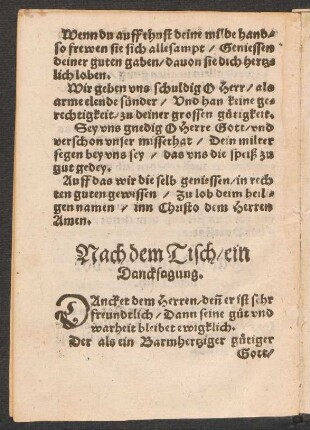 Wenn du auffthust deine milde hand⸗
so frewen sie sich allesampt / Geniessen
deiner guten gaben / dauon sie dich hertz
lich loben.
Wir geben vns schuldig O Herr / als
arme elende sünder / Vnd han keine ge⸗
rechtigkeit / zu deiner grossen gütigkeit.
Sey vns gnedig O Herre Gott / vnd
verschon vnser missethat / Dein milter
segen bey vns sey / das vns die speiß zu
gut gedey.
Auff das wir die selb geniessen / in rech
ten guten gewissen / Zu lob deim heil⸗
gen namen / inn Christo dem Herren
Amen.
Nach dem Tisch / ein
Dancksagung.
DAncket dem Herren / deñ er ist sehr
freundtlich / Dann seine güt vnd
warheit bleibet ewigklich.
Der als ein Barmhertziger gütiger
Gott /